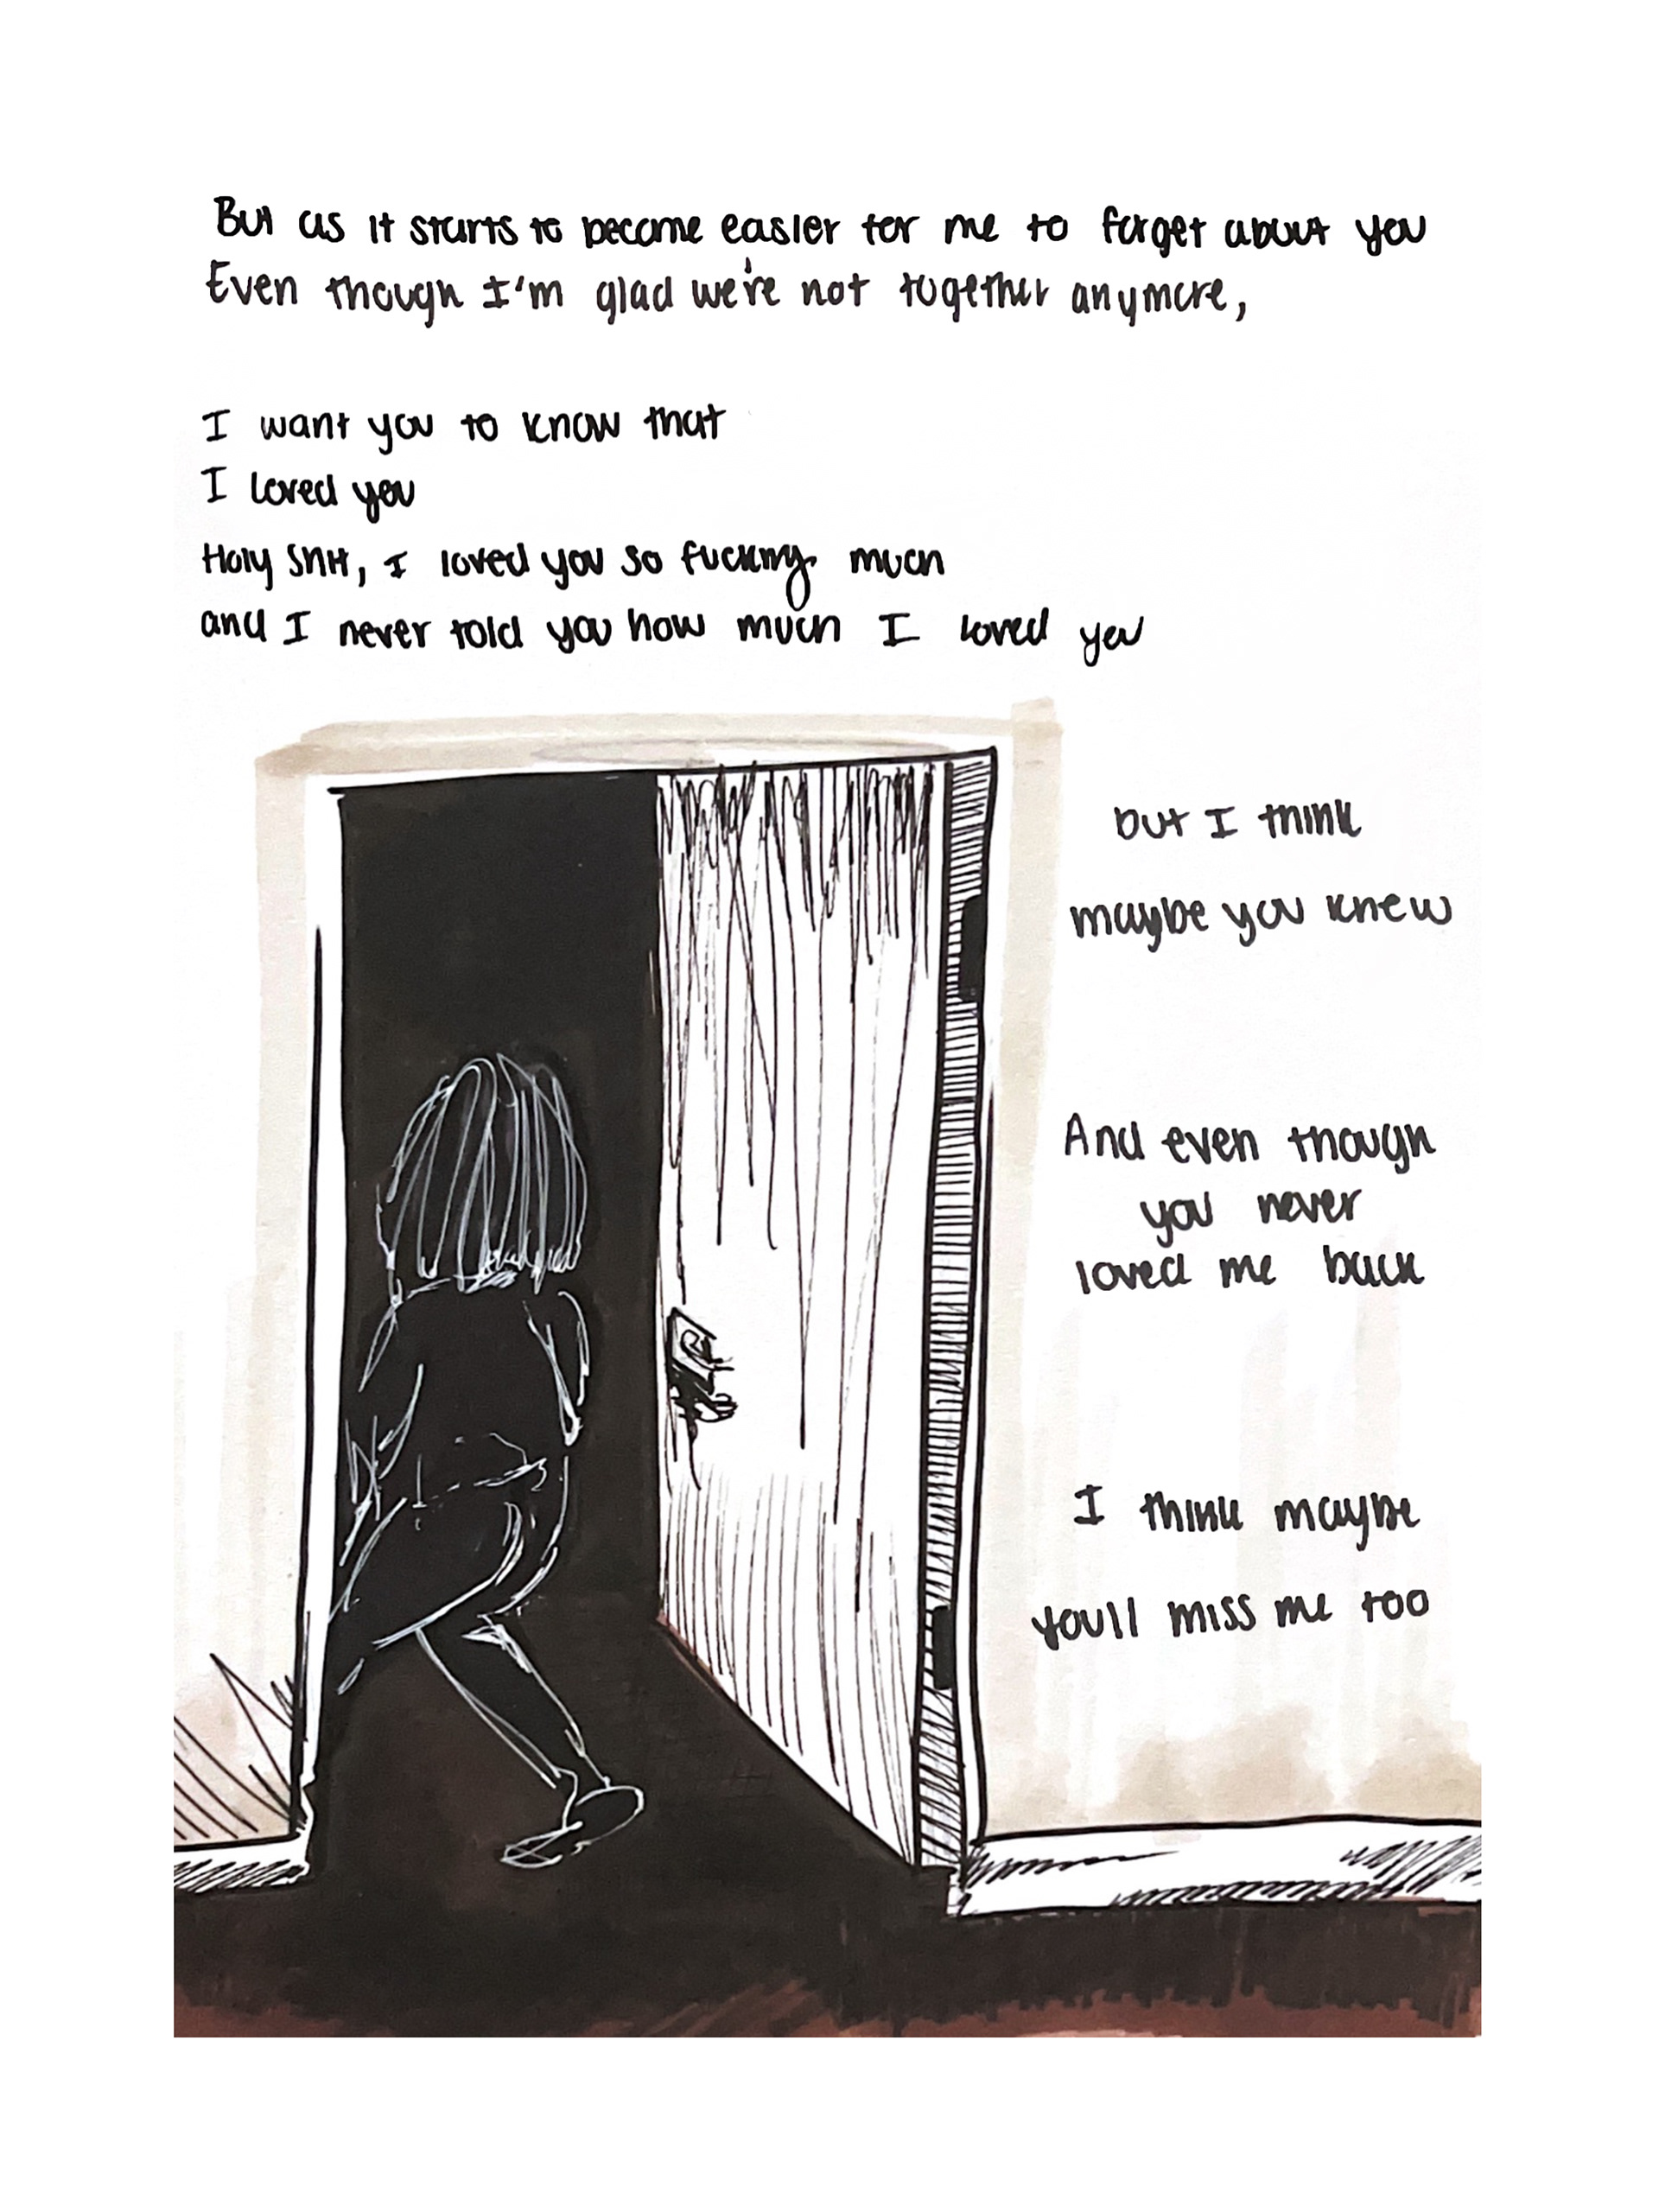 But as it starts to become easier for me to forget about you
Even though I'm glad we're not together anymore,
I want you to know that
I loved you
Holy shit, I loved you so fucking much
and I never told you how much I loved you
but I think
maybe you knew
And even though
you never
loved me back
I think maybe
you'll miss me too